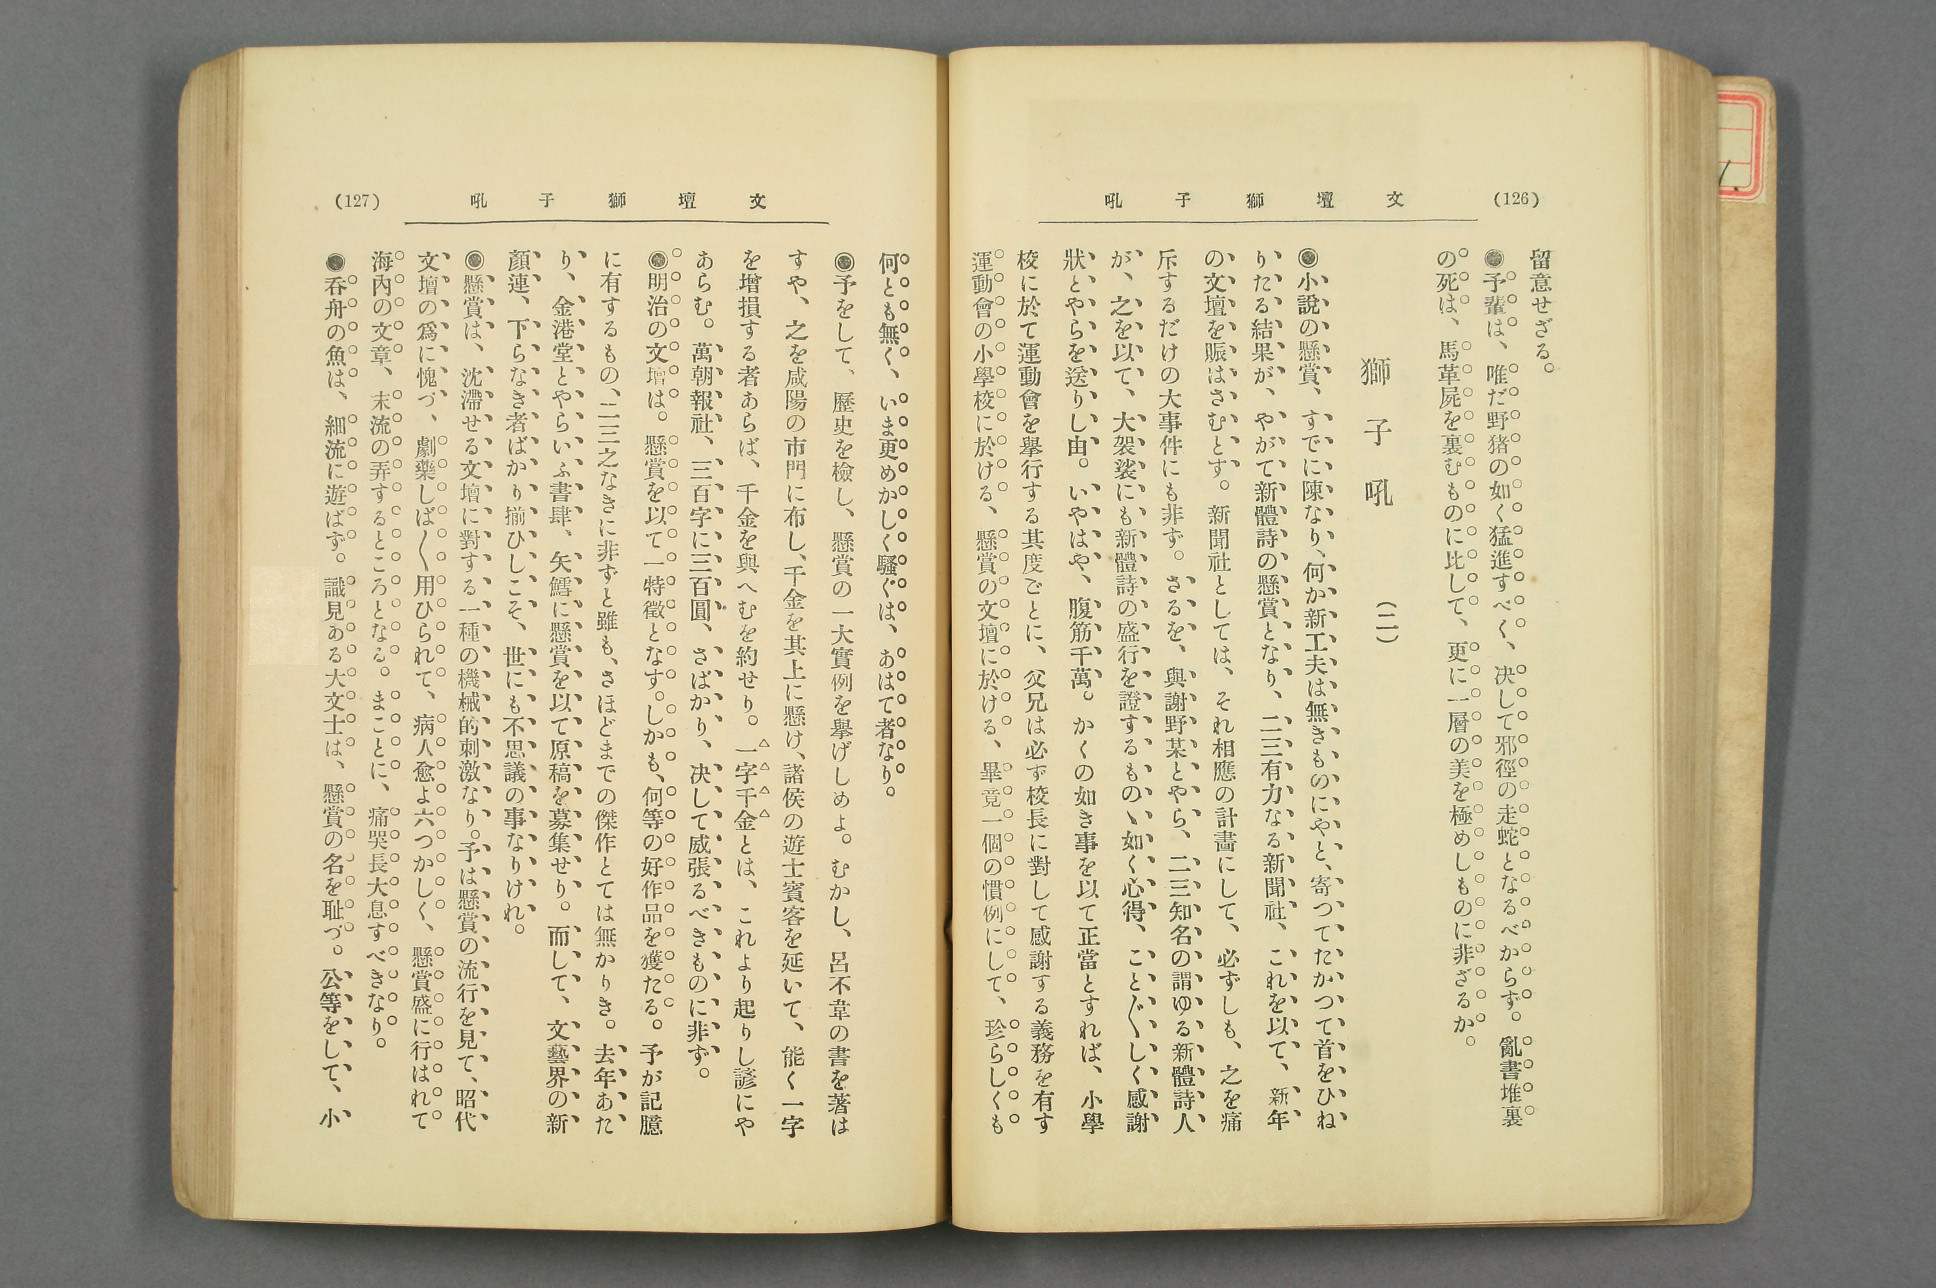 (126)
文壇獅子吼
留意せざる。
◉予輩は、唯だ野猪の如く猛進すべく、決して邪徑の走蛇となるべからず。亂書堆裏
の死は、馬革屍を裏むものに比して、更に一層の美を極めしものに非ざるか。
獅子吼(二)
◉小說の懸賞、すでに陳なり、何か新工夫は無きものにやと、寄つてたかつて首をひね
りたる結果が、やがて新體詩の懸賞となり、二三有力なる新聞社、これを以て、新年
の文壇を賑はさむとす。新聞社としては、それ相應の計畵にして、必ずしも、之を痛
斥するだけの大事件にも非ず。さるを、與謝野某とやら、二三知名の謂ゆる新體詩人
が、之を以て、大袈裟にも新體詩の盛行を證するものゝ如く心得、こと〴〵しく感謝
狀とやらを送りし由。いやはや、腹筋千萬。かくの如き事を以て正當とすれば、小學
校に於て運動會を擧行する其度ごとに、父兄は必ず校長に對して感謝する義務を有す
運動會の小學校に於ける、懸賞の文壇に於ける、畢竟一個の慣例にして、珍らしくも
(127)
文壇獅子吼
何とも無く、いま更めかしく騷ぐは、あはて者なり。
◉予をして、歷史を檢し、懸賞の一大實例を擧げしめよ。むかし、呂不韋の書を著は
すや、之を咸陽の市門に布し、千金を其上に懸け、諸侯の遊士賓客を延いて、能く一字
を增損する者あらば、千金を與へむを約せり。一字千金とは、これより起りし諺にや
あらむ。萬朝報社、三百字に三百圓、さばかり、決して威張るべきものに非ず。
◉明治の文壇は。懸賞を以て一特徵となす。しかも、何等の好作品を獲たる。予が記臆
に有するもの、二三之なきに非ずと雖も、さほどまでの傑作とては無かりき。去年あた
り、金港堂とやらいふ書肆、矢鱈に懸賞を以て原稿を募集せり。而して、文藝界の新
顏連、下らなき者ばかり揃ひしこそ、世にも不思議の事なりけれ。
◉懸賞は、沈滯せる文壇に對する一種の機械的刺激なり。予は懸賞の流行を見て、昭代
文壇の爲に愧づ、劇藥しば〳〵用ひられて、病人愈よ六つかしく、懸賞盛に行はれて
海內の文章、末流の弄するところとなる。まことに、痛哭長大息すべきなり。
◉呑舟の魚は、細流に遊ばず。識見ある大文士は、懸賞の名を耻づ。公等をして、小